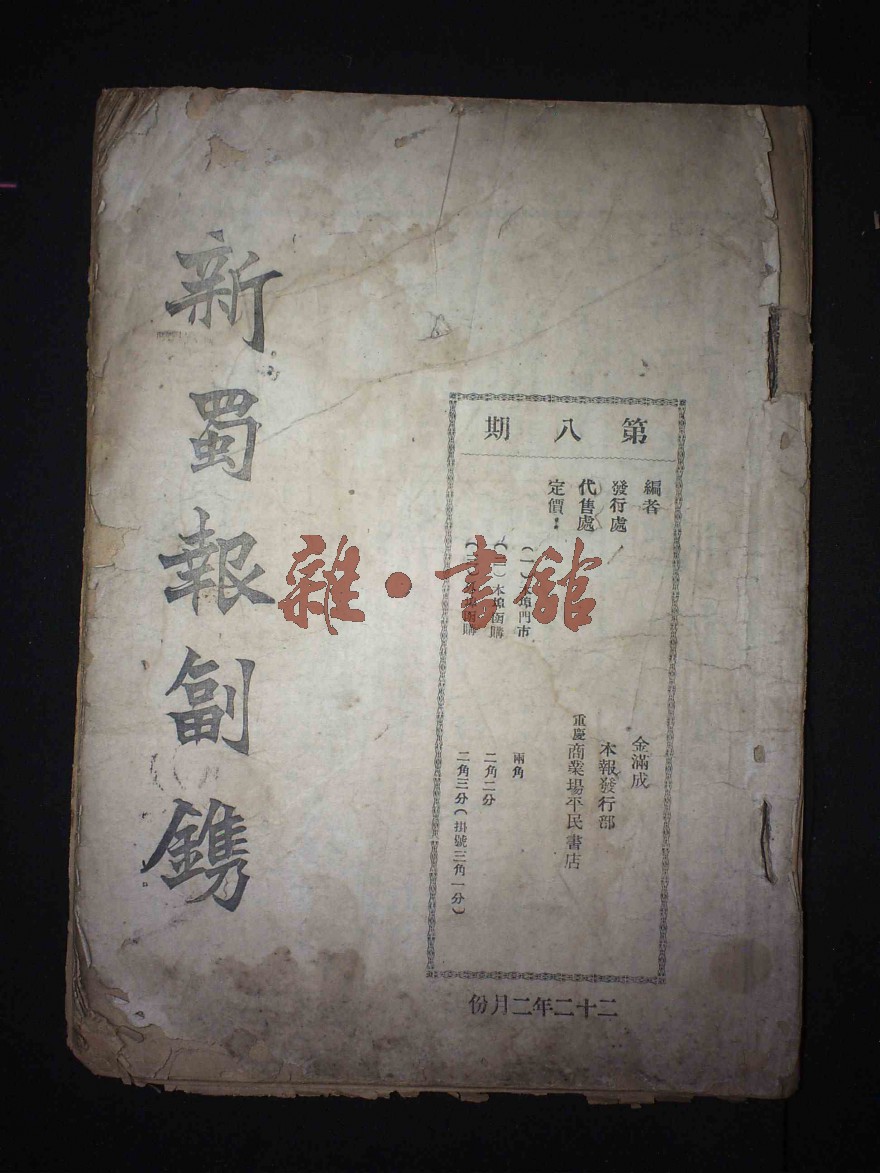 新蜀報副鐫
第八期
編者 金滿成
發行處 本報發行部
代售處 重慶商業場平民書店
定價：
（一）本埠門市 兩角
（二）本埠函購 二角二分
（三） 函購 二角三分（掛號三角一分）
二十二年二月份
雜·書館